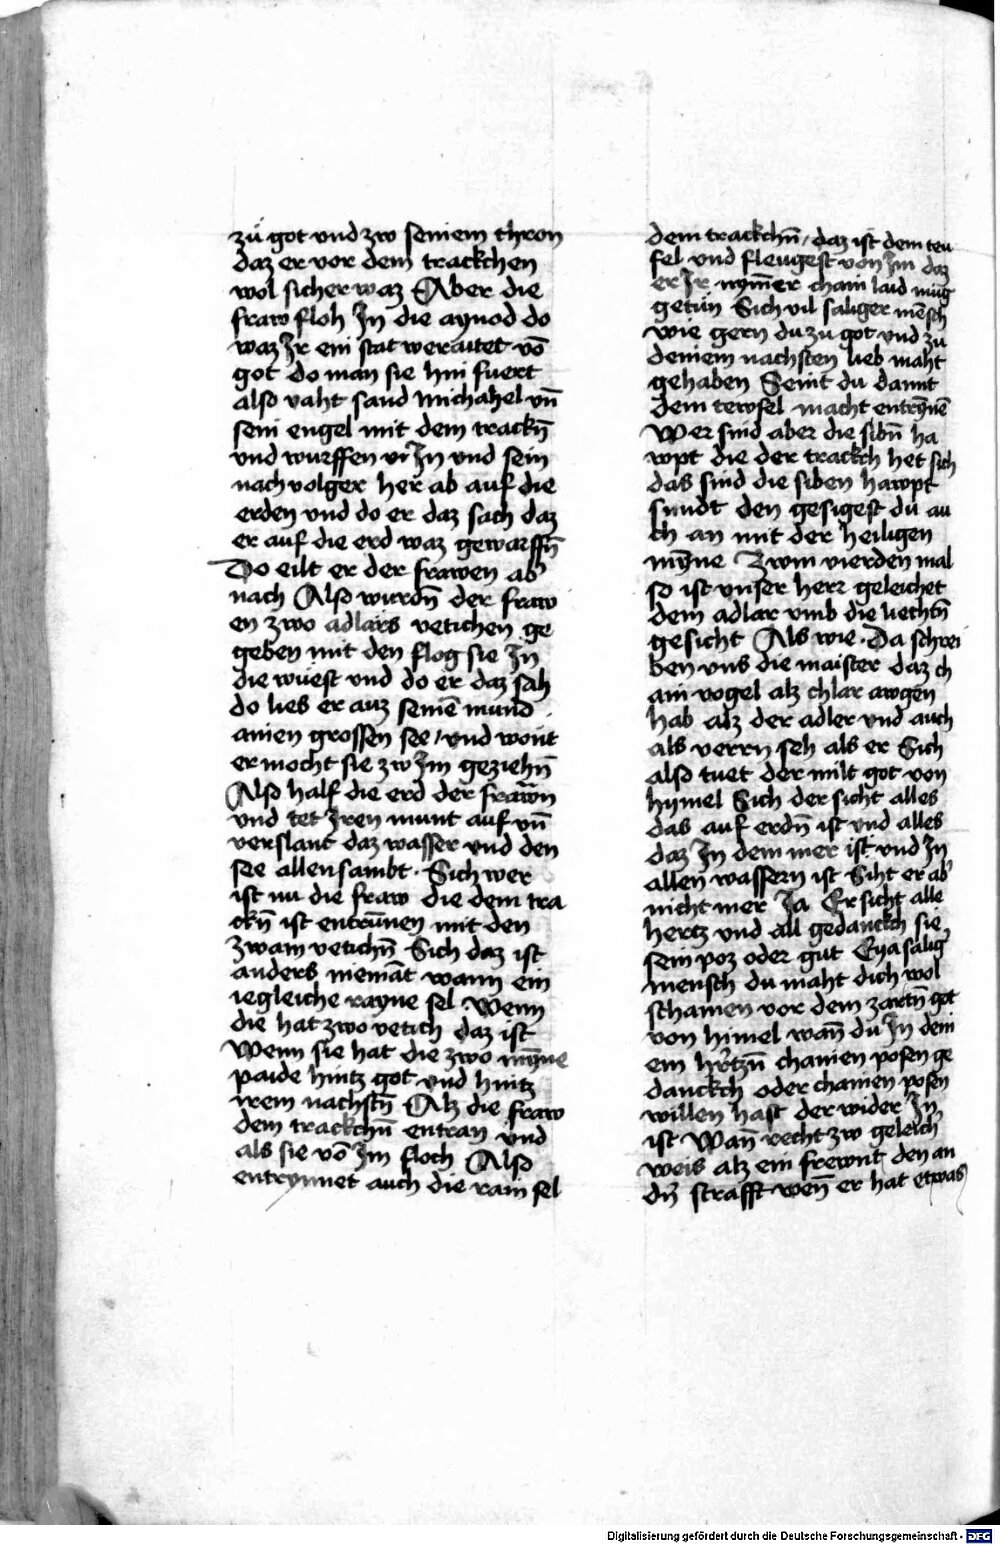 zů got vnd zw seniem thron
daz er vor dem trackchen
wol sicher waz Aber die
fraw floh Jn die aynod do
waz Jr ein stat weraitet võ
got do man sie hin fuert
also vaht sand michahel vn̄
sein engel mit dem trackn̄
vnd wurffen vi Jn vnd sein
nachvolger her ab auf die
erden vnd do er daz sach daz
er auf die erd waz gewarffn̄
Do eilt er der frawen ab
nach Also wurdn̄ der fraw
en zwo adlars vetichen ge
geben mit den flog sie Jn
die wüest vnd do er daz sah
do lies er auz seinē mund
ainen grossen see / vnd wont
er mocht sie zw Jm geziehn̄
Also half die erd der frawn
vnd tet Jren munt auf vn̄
verslant daz wasser vnd den
see allensambt. Sich wer
ist nu die fraw die dem tra
ckn̄ ist entrūnen mit den
zwain vetichn̄ Sich daz ist
anders niemāt wann ein
iegleiche rayne sel. Wenn
die hat zwo vetich daz ist
Wenn sie hat die zwo mȳne
paide hintz got vnd hintz
irem nachstn̄ Alz die fraw
dem trackchn̄ entran vnd
als sie võ Jm floch Also
entrynnet auch die rain sel
dem trackchn̄ / daz ist dem teu
fel vnd fleugest von Jm daz
er Jr nym̄er cham laid mug
getün Sich vil saliger mēsch
wie gern du zu got vnd zu
deniem nachsten lieb maht
gehaben Seint du damit
dem tewfel macht entrȳnē
Wer sind aber die sibn̄ ha
wpt die der trackch het sich
das sind die siben hawpt
sundt den gesigest du au
ch an mit der heiligen
mȳne Zwm vierden mal
so ist vnser herr geleichet
dem adlar vmb die liechtn̄
gesicht Als wie. Da schrei
ben vns die maister daz ch
ain vogel alz chlar awgen
hab alz der adler vnd auch
als verrn seh als er Sich
also tuet der milt got von
hymel Sich der sicht alles
das auf erdn̄ ist vnd alles
daz Jn dem mer ist vnd Jn
allen wassern ist Siht er ab
nicht mer Ja Er sicht alle
hertz vnd all gedanckch sie
sein poz oder gut Eya salig
mensch du maht dich wol
schamen vor dem zartn̄ got
von himel wan̄ du Jn dein
em hrtzn̄ chainen posen ge
danckch oder chainen posen
willen hast der wider Jn
ist Wan̄ recht zw geleich
weis alz ein frewnt den an
dn̄ strafft wen̄ er hat etwas
Digitalisierung gefördert durch die Deutsche Forschungsgemeinschaft - DFG